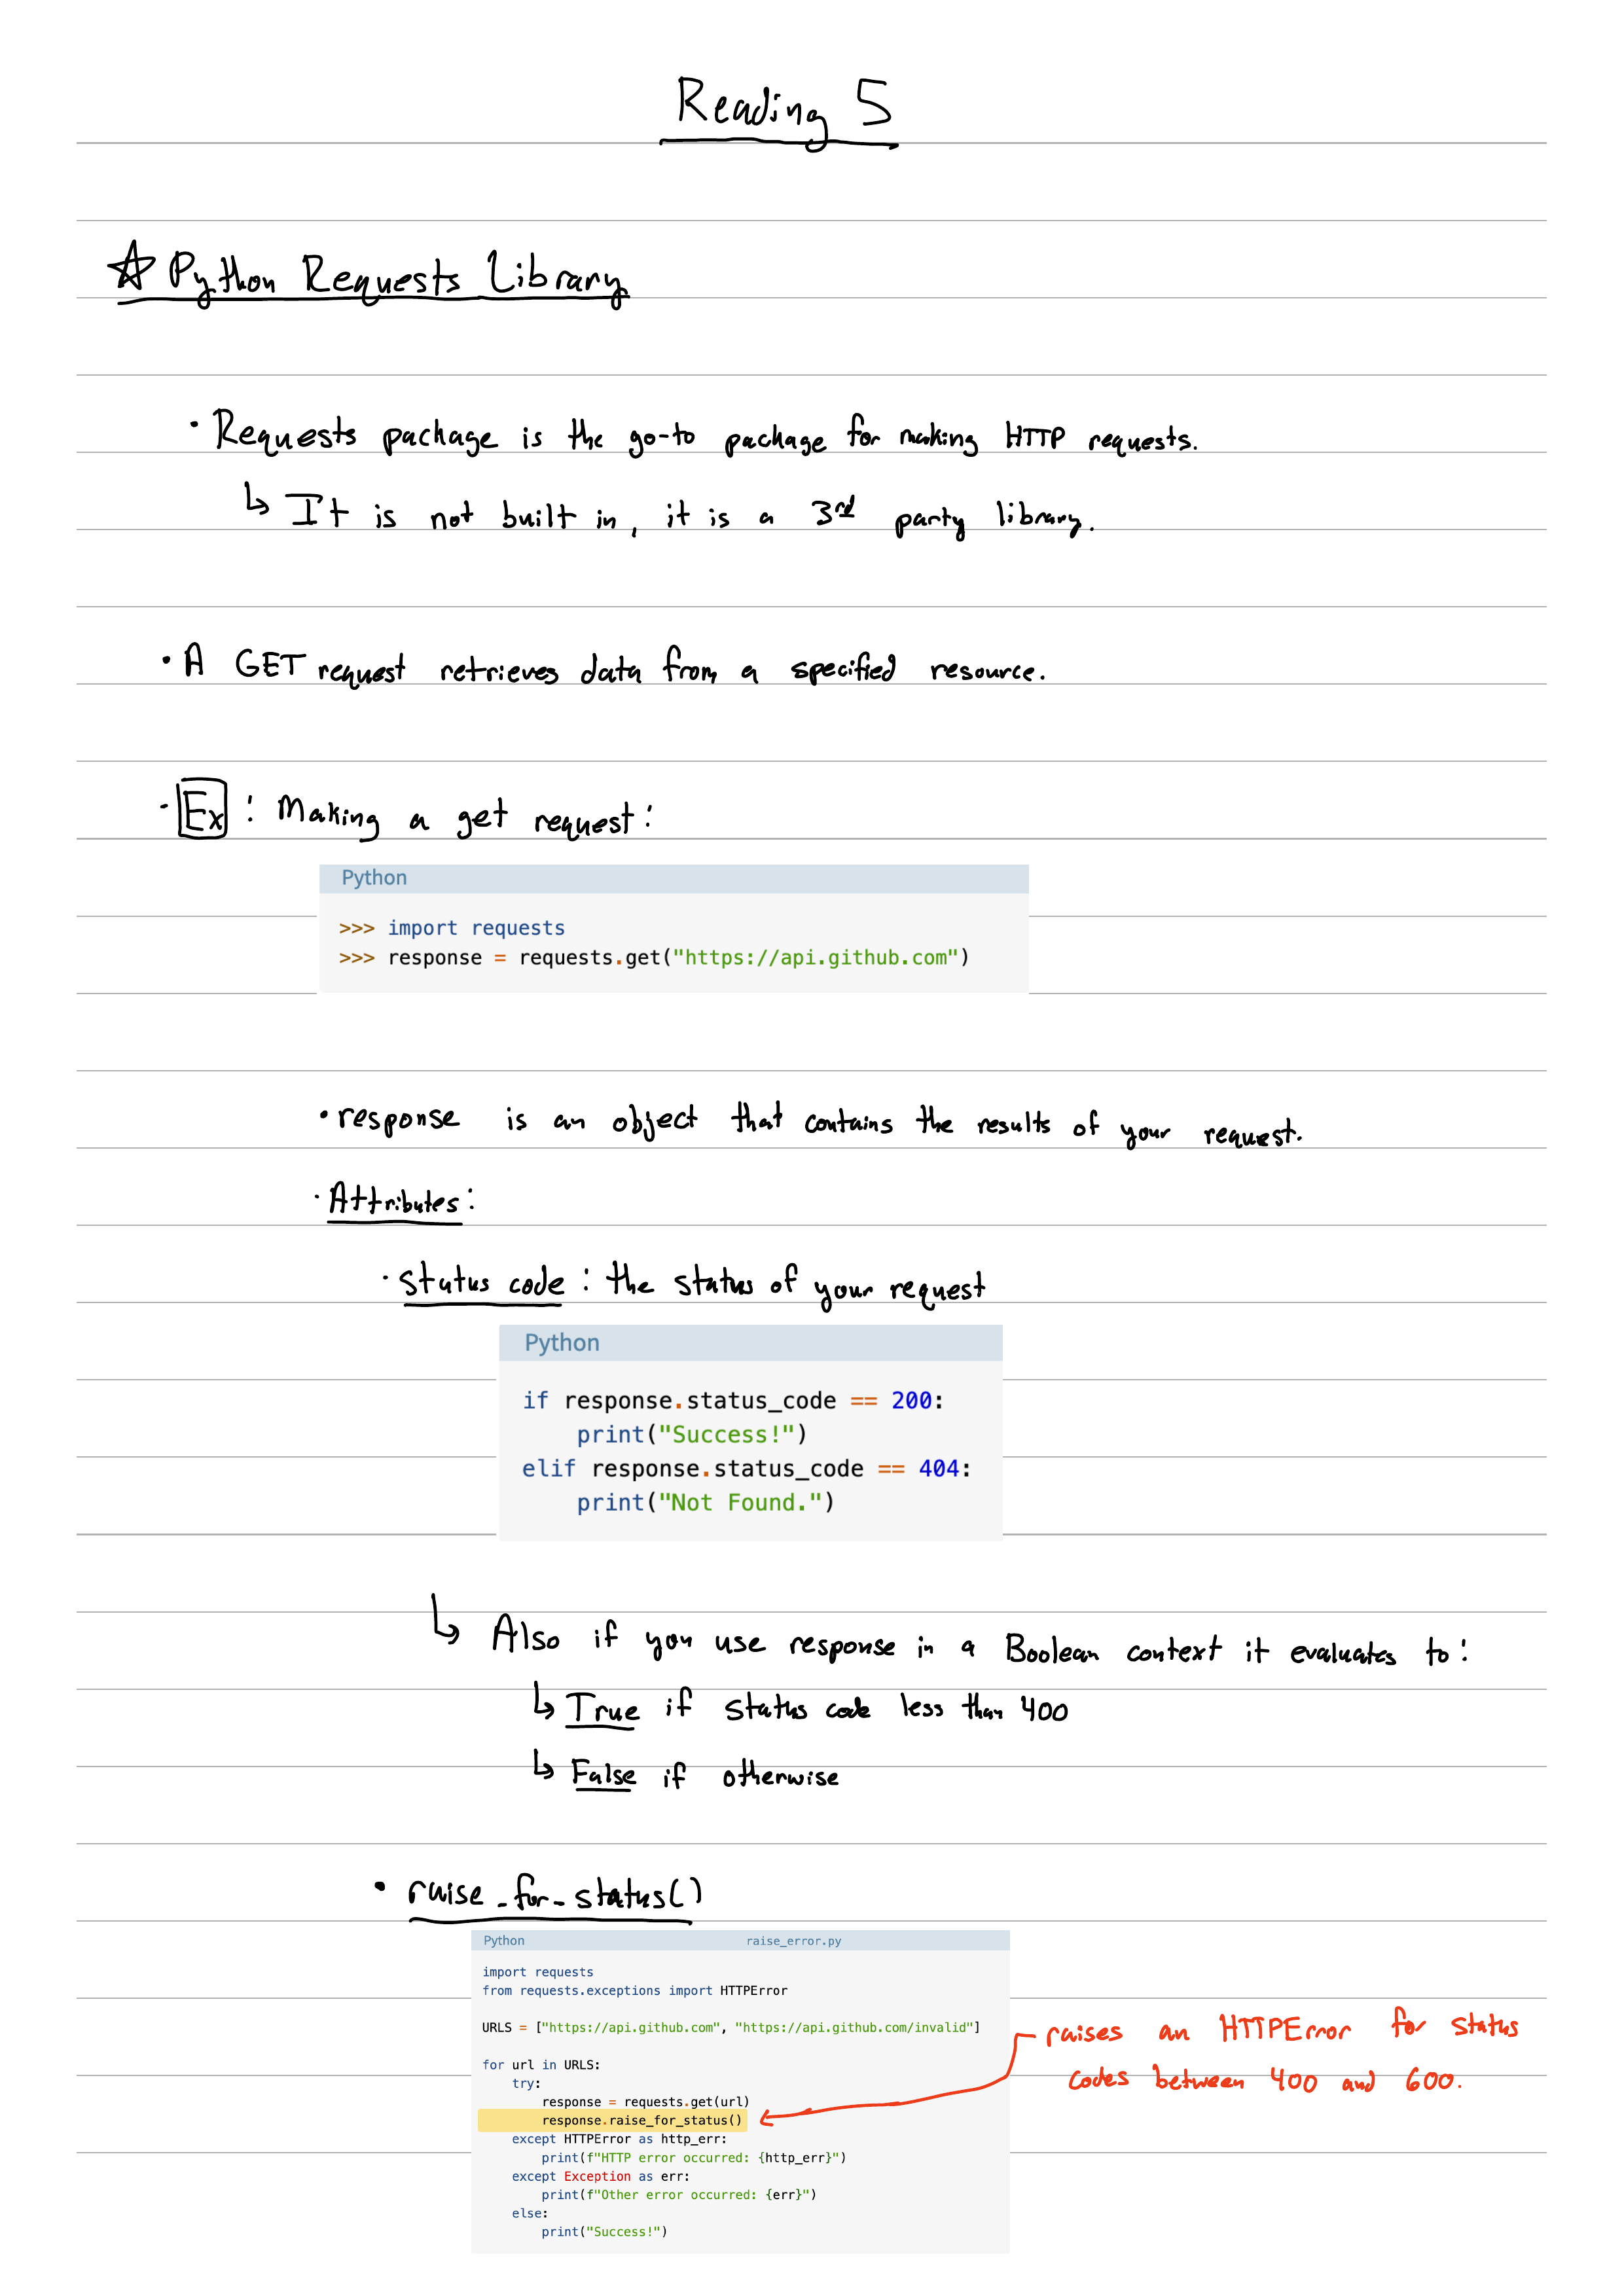 Reading 5
☆ Python Requests Library
· Requests package is the go-to package for making HTTP requests.
↳ It is not built in, it is a 3rd party library.
· A GET request retrieves data from a specified resource.
· Ex : Making a get request:
Python
>>> import requests
>>> response = requests.get("https://api.github.com")
· response is an object that contains the results of your request.
· Attributes:
· status code : the status of your request
Python
if response.status_code == 200:
    print("Success!")
elif response.status_code == 404:
    print("Not Found.")
↳ Also if you use response in a Boolean context it evaluates to:
↳ True if status code less than 400
↳ False if otherwise
· raise_for_status()
Python raise_error.py
import requests
from requests.exceptions import HTTPError
URLS = ["https://api.github.com", "https://api.github.com/invalid"]
for url in URLS:
    try:
        response = requests.get(url)
        response.raise_for_status()
    except HTTPError as http_err:
        print(f"HTTP error occurred: {http_err}")
    except Exception as err:
        print(f"Other error occurred: {err}")
    else:
        print("Success!")
raises an HTTPError for status
codes between 400 and 600.